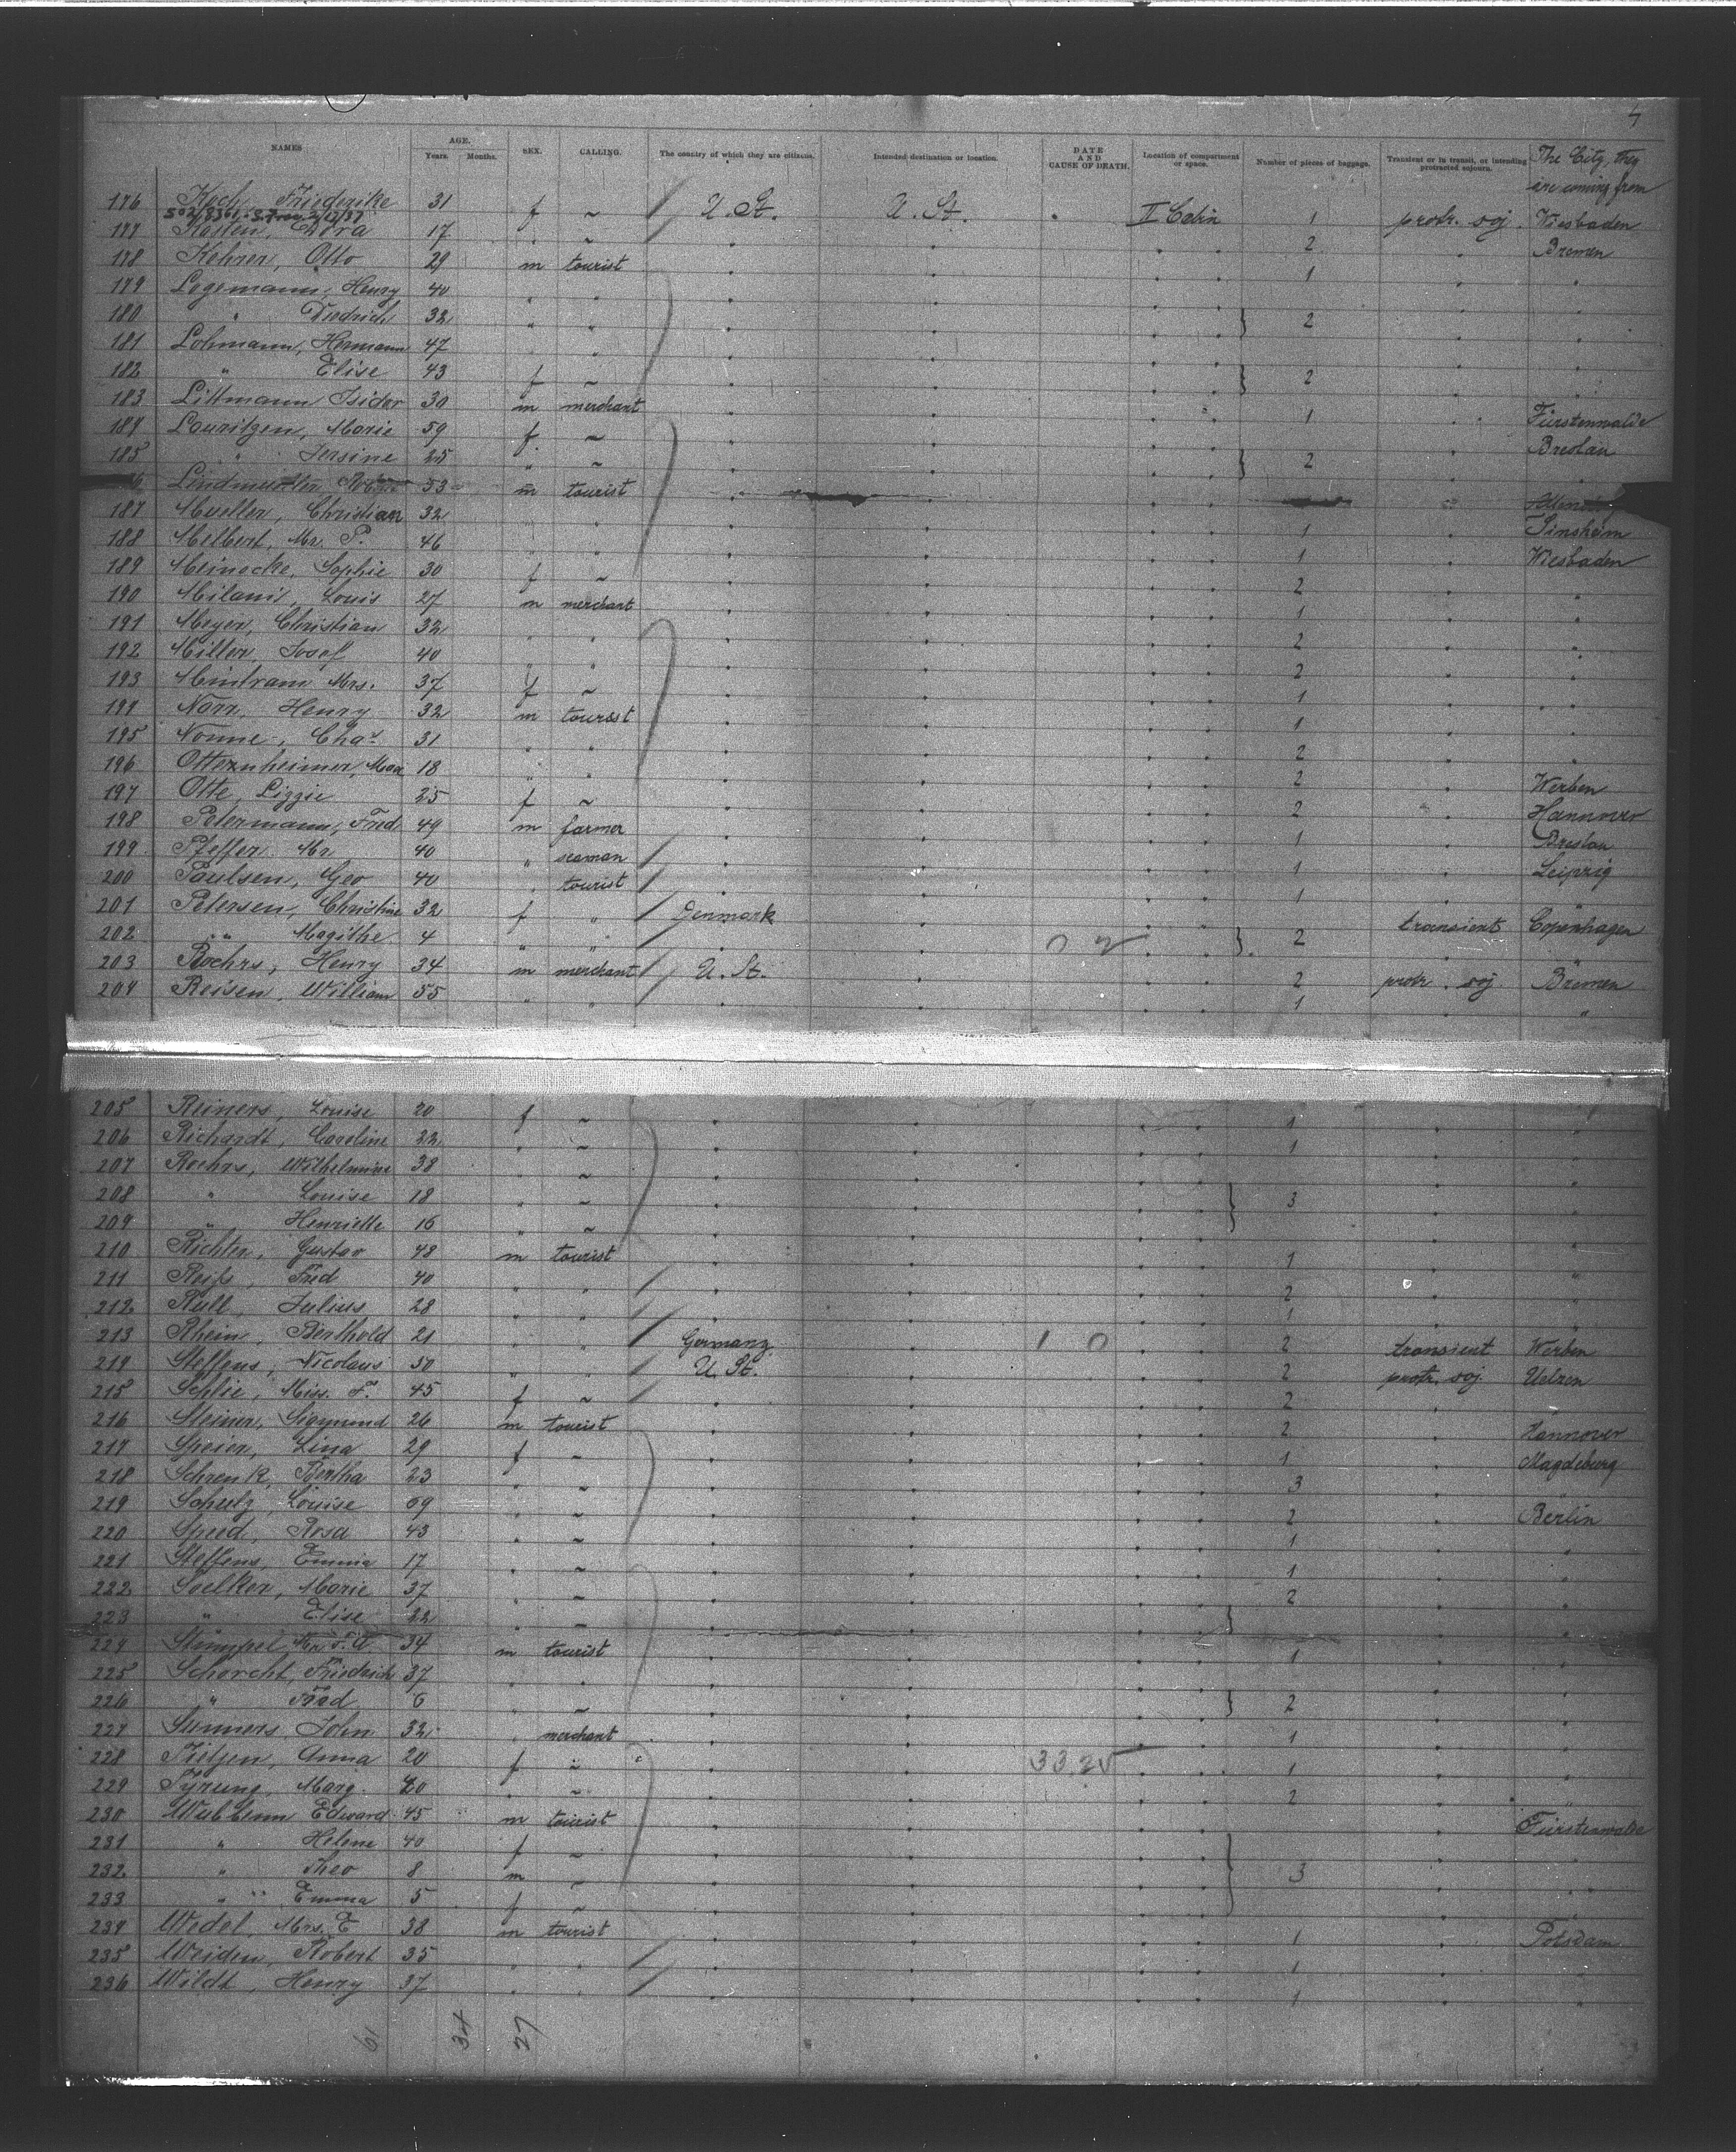 4
NAMES AGE. Years. Months. SEX. CALLING. The country of which they are citizens. Intended destination or location. DATE AND CAUSE OF DEATH. Location of compartment or space. Number of pieces of baggage. Transient or in transit, or intending protracted sojourn. The City, they are coming from
176 Koch, Friederike 31 f ~ U. St. U. St. II Cabin 1 protr. soj. Wiesbaden
177 Kasten, Dora 17 " ~ " " " " 2 " Bremen
178 Kehrer, Otto 29 m tourist " " " " 1 " "
179 Logemann, Henry 40 " " " " " "
180 " Diedrich 32 " " " " " " } 2 " "
181 Lohmann, Hermann 47 " " " " " " " "
182 " Elise 43 f ~ " " " " } 2 " "
183 Littmann Isidor 30 m merchant " " " " 1 " Fürstenwalde
184 Lauritzen, Marie 59 f. ~ " " " " " Breslau
185 " Jersine 25 " ~ " " " " } 2 " "
53 m tourist
187 Mueller, Christian 32 " " " " " " 1 " Sinsheim
188 Melbert, Mr. P. 46 " " " " " " 1 " Wiesbaden
189 Meinecke, Sophie 30 f ~ " " " " 2 " "
190 Milanis, Louis 27 m merchant " " " " 1 " "
191 Meyer, Christian 32 " " " " " " 2 " "
192 Miller, Josef 40 " " " " " " 2 " "
193 Mintram Mrs. 37 f ~ " " " " 1 " "
194 Narr, Henry 32 m tourist " " " " 1 " "
195 Nonne, Chas. 31 " " " " " " 2 " "
196 Otternheimer, Max 18 " " " " " " 2 " Werben
197 Otte, Lizzie 25 f ~ " " " " 2 " Hannover
198 Petermann, Fred 49 m farmer " " " " 1 " Breslau
199 Pfeffer Mr. 40 " seaman " " " " 1 " Leipzig
200 Paulsen, Geo 40 " tourist " " " " 1 " "
201 Petersen, Christine 32 f " Denmark " " " transient Copenhagen
202 " Magithe 4 " " " " " " } 2 " "
203 Roehrs, Henry 34 m merchant U. St. " " " 2 protr. soj. Bremen
204 Reisen, William 55 " " " " " " 1 " "
205 Reiners, Louise 20 f ~ " " " " 1 " "
206 Richardt, Caroline 22 " ~ " " " " 1 " "
207 Roehrs, Wilhelmine 38 " ~ " " " " " "
208 " Louise 18 " ~ " " " " } 3 " "
209 " Henriette 16 " ~ " " " " " "
210 Richter, Gustav 48 m tourist " " " " 1 " "
211 Reiß, Fred 40 " " " " " " 2 " "
212 Rull, Julius 28 " " " " " " 1 " "
213 Rhein, Berthold 21 " " Germany " 1 0 " " 2 transient Werben
214 Steffens, Nicolaus 50 " " U. St. " " " 2 protr. soj Uelzen
215 Schlie, Miss. F. 45 f ~ " " " " 2 " "
216 Steiner, Sigmund 26 m tourist " " " " 2 " Hannover
217 Speier, Lina 29 f ~ " " " " 1 " Magdeburg
218 Schrenk, Bertha 23 " ~ " " " " 3 " "
219 Schulz, Louise 69 " ~ " " " " 2 " Berlin
220 Speed, Rosa 43 " ~ " " " " 1 " "
221 Steffens, Emma 17 " ~ " " " " 1 " "
222 Soelker, Marie 37 " ~ " " " " 2 " "
223 " Elise 22 " ~ " " " " } " "
224 Stümpel Mr. F. A 34 m tourist " " " " 1 " "
225 Schorcht, Friedrich 37 " " " " " " " "
226 " Fred 6 " ~ " " " " } 2 " "
227 Sunners, John 32 " merchant " " " " 1 " "
228 Tietjen, Anna 20 f ~ " " 33 25 " " 1 " "
229 Tyrung, Marg. 20 " ~ " " " " 2 " "
230 Edward 45 m tourist " " " " " Fürstenwalde
231 " Helene 40 f ~ " " " " " "
232 " Theo 8 m ~ " " " " } 3 " "
233 " Emma 5 f ~ " " " " " "
234 Wedel, Mrs. E 38 m tourist " " " " 1 " Potsdam
235 Weiden, Robert 35 " " " " " " 1 " "
236 Wildt, Henry 37 " " " " " " 1 " "
61 34 27